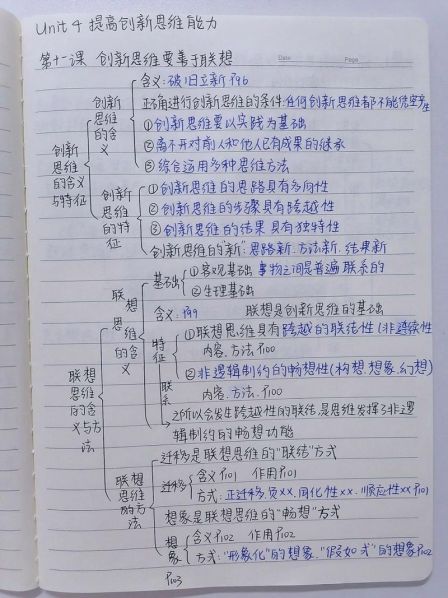 Unit 4 提高创新思维能力
第十一课 创新思维要善于联想
Date
Page
创新思维的含义与特征
创新思维的含义
含义:破旧立新 P96
正确进行创新思维的条件:任何创新思维都不能凭空产生
①创新思维要以实践为基础
②离不开对前人和他人已有成果的继承
③综合运用多种思维方法
创新思维的特征
①创新思维的思路具有多向性
②创新思维的步骤具有跨越性
③创新思维的结果具有独特性
创新思维的"新":思路新.方法新.结果新
联想思维的含义与方法
联想思维的含义
基础
①客观基础 事物之间是普遍联系的
②生理基础
含义:P99 联想是创新思维的基础
特征
①联想思维具有跨越的联结性(非连续性
内容.方法 P100
②非逻辑制约的畅想性(构想.想象.幻想)
内容.方法 P100
联系
之所以会发生跨越性的联结,是思维发挥了非逻
辑制约的畅想功能
联想思维的方法
迁移是联想思维的"联结"方式
迁移
含义P101 作用P101
方式:正迁移.负××.同化性××.顺应性××P101
想象是联想思维的"畅想"方式
想象
含义P102 作用P102
方式:"形象化"的想象."假如式"的想象P102
P103